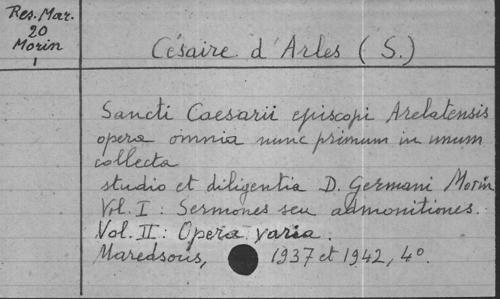 Res. Mar.
20
Morin
1
Césaire d'Arles (S.)
Sancti Caesarii episcopi Arelatensis
opera omnia nunc primum in unum
collecta
studio et diligentia D. Germani Morin
Vol. I : Sermones seu admonitiones.
Vol. II : Opera varia.
Maredsous, 1937 et 1942, 4°.